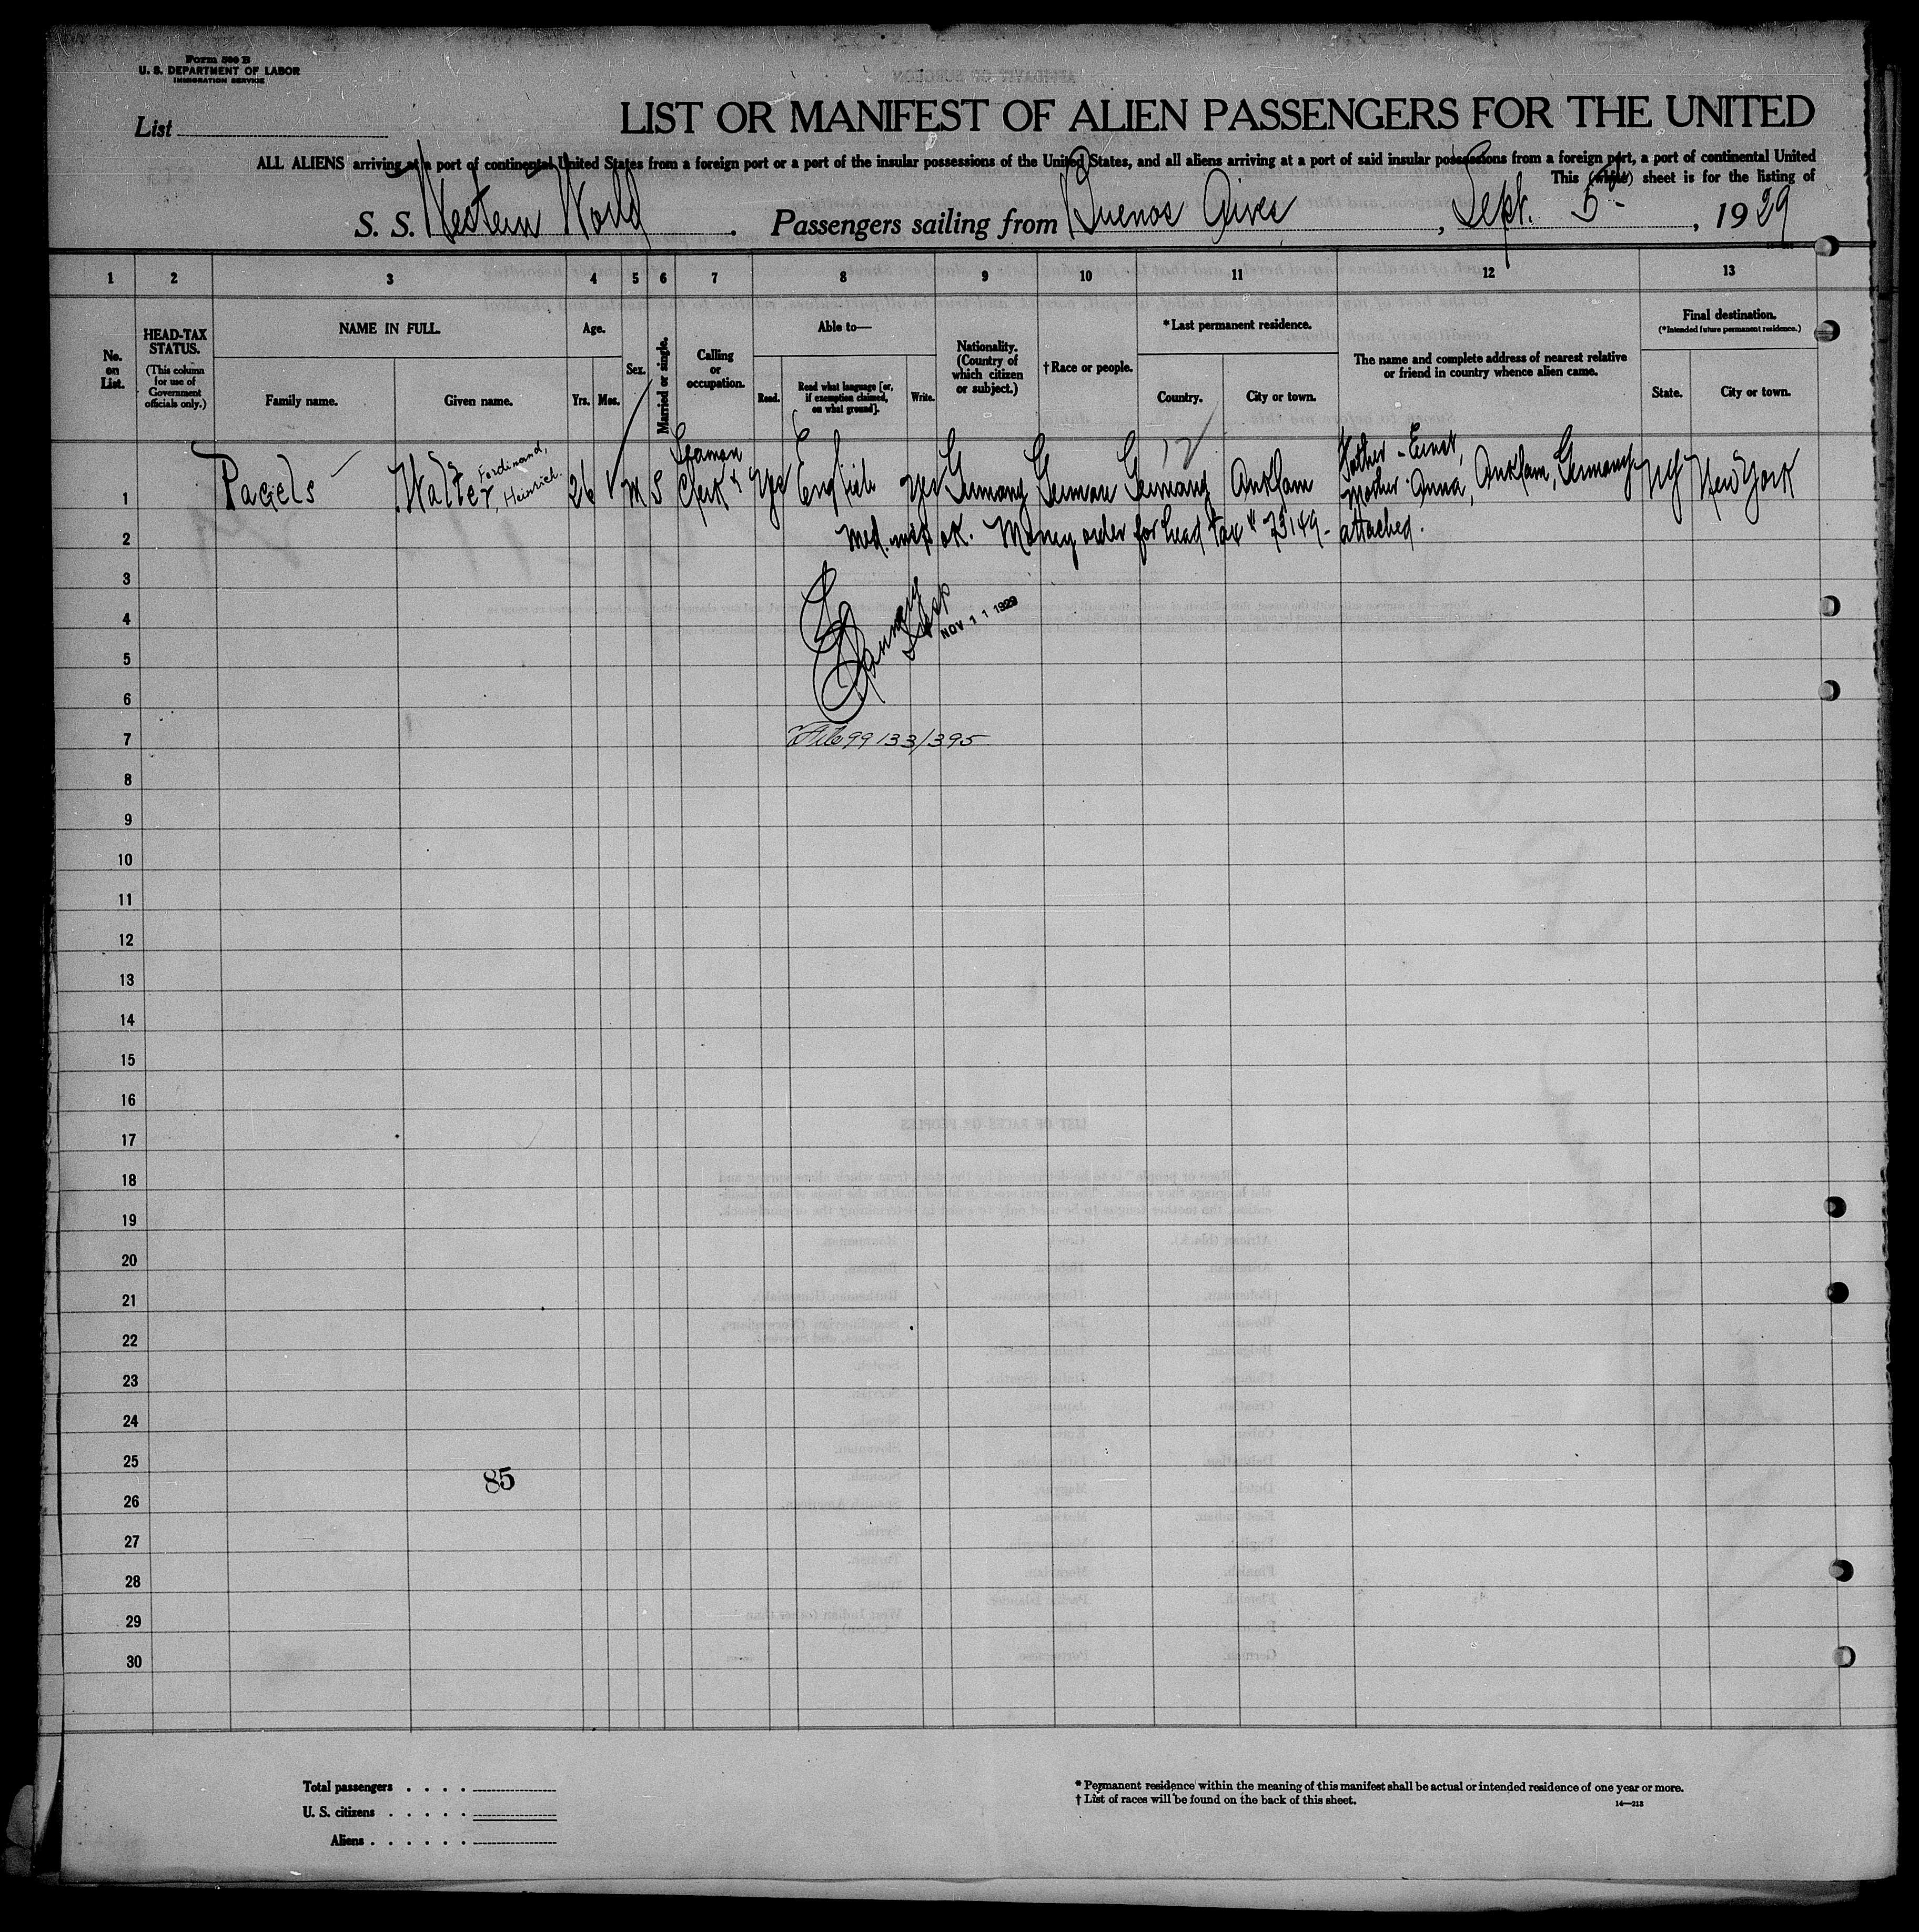 Form 500 B
U. S. DEPARTMENT OF LABOR
IMMIGRATION SERVICE
List
LIST OR MANIFEST OF ALIEN PASSENGERS FOR THE UNITED
ALL ALIENS arriving at a port of continental United States from a foreign port or a port of the insular possessions of the United States, and all aliens arriving at a port of said insular possessions from a foreign port, a port of continental United
This (white) sheet is for the listing of
S. S. Western World . Passengers sailing from Buenos Aires , Sept. 5 - , 1929
1 2 3 4 5 6 7 8 9 10 11 12 13
No. on List.
HEAD-TAX STATUS.
(This column for use of Government officials only.)
NAME IN FULL.
Family name.
Given name.
Age.
Yrs.
Mos.
Sex.
Married or single.
Calling or occupation.
Able to—
Read.
Read what language [or, if exemption claimed, on what ground].
Write.
Nationality. (Country of which citizen or subject.)
† Race or people.
* Last permanent residence.
Country.
City or town.
The name and complete address of nearest relative or friend in country whence alien came.
Final destination.
(*Intended future permanent residence.)
State.
City or town.
1 Pagels Walter, Ferdinand, Heinrich. 26 M S Seaman Clerk Yes English Yes Germany German Germany Anklam Father - Ernst, Mother Anna, Anklam, Germany. NY New York
2 Med. insp ok. Money order for head tax # 73149 - attached.
3
4 NOV 11 1929
5
6
7 File 99133/395
8
9
10
11
12
13
14
15
16
17
18
19
20
21
22
23
24
25
85
26
27
28
29
30
Total passengers . . . .
U. S. citizens . . . . .
Aliens . . . . . .
* Permanent residence within the meaning of this manifest shall be actual or intended residence of one year or more.
† List of races will be found on the back of this sheet.
14—213